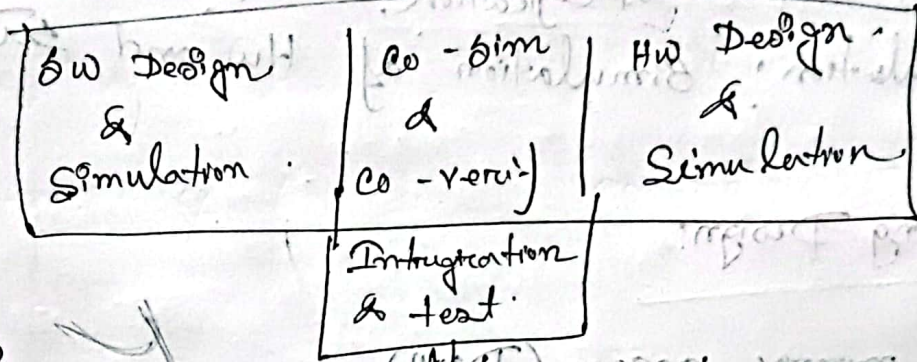 SW Design
&
Simulation.
Co-sim
&
Co-verif
HW Design.
&
Simulation
Intugration
& test.